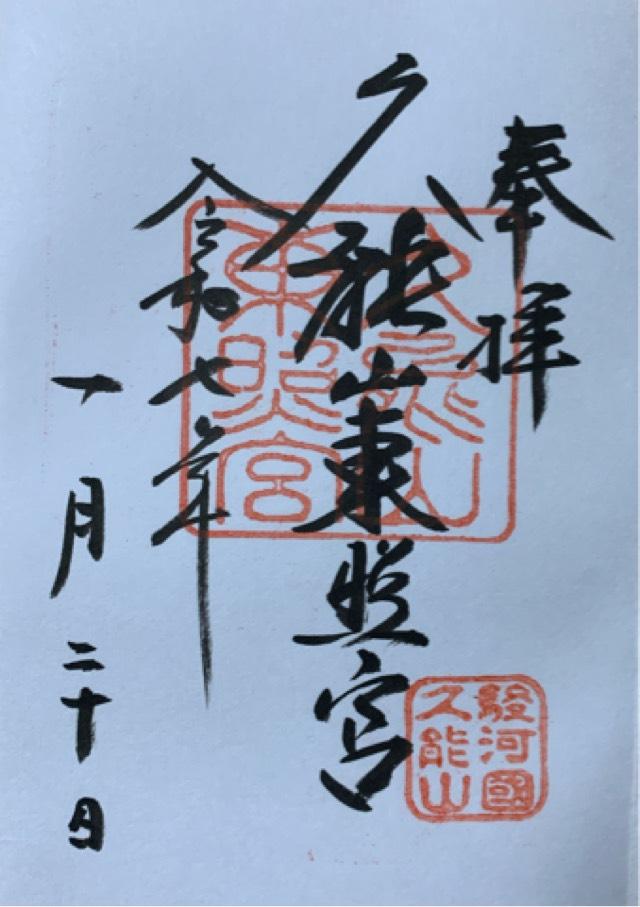 奉拝
久能山東照宮
令和七年
一月二十日
久能山
東照宮
駿河國
久能山